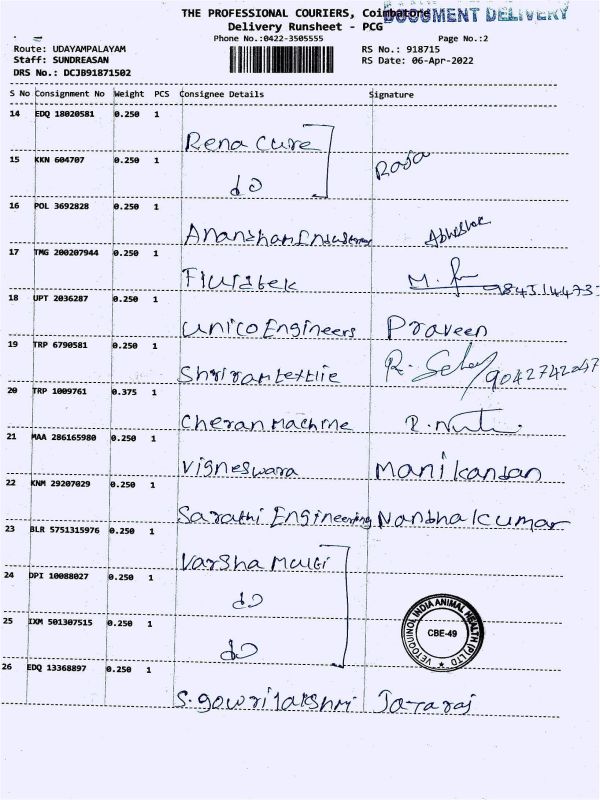 THE PROFESSIONAL COURIERS, Coimbatore
DOCUMENT DELIVERY
Delivery Runsheet - PCG
Phone No.:0422-3505555 Page No.:2
Route: UDAYAMPALAYAM RS No.: 918715
Staff: SUNDREASAN RS Date: 06-Apr-2022
DRS No.: DCJB91871502
S No Consignment No Weight PCS Consignee Details Signature
14 EDQ 18020581 0.250 1
Rena Cure
15 KKN 604707 0.250 1
do Raja
16 POL 3692828 0.250 1
Abhishek
17 TMG 200207944 0.250 1
Fluidtek M.
18 UPT 2036287 0.250 1
Unico Engineers Praveen
19 TRP 6790581 0.250 1
Shriram textile R. 9042742047
20 TRP 1009761 0.375 1
Cheran Machine
21 MAA 286165980 0.250 1
Vigneswara Manikandan
22 KNM 29207029 0.250 1
Sarathi Engineering Nandhakumar
23 BLR 5751315976 0.250 1
Varsha Multi
24 DPI 10088027 0.250 1
do
25 IXM 501307515 0.250 1
do
VETOQUINOL INDIA ANIMAL HEALTH (P) LTD
CBE-49
26 EDQ 13368897 0.250 1
S. gowrilakshmi Jayaraj